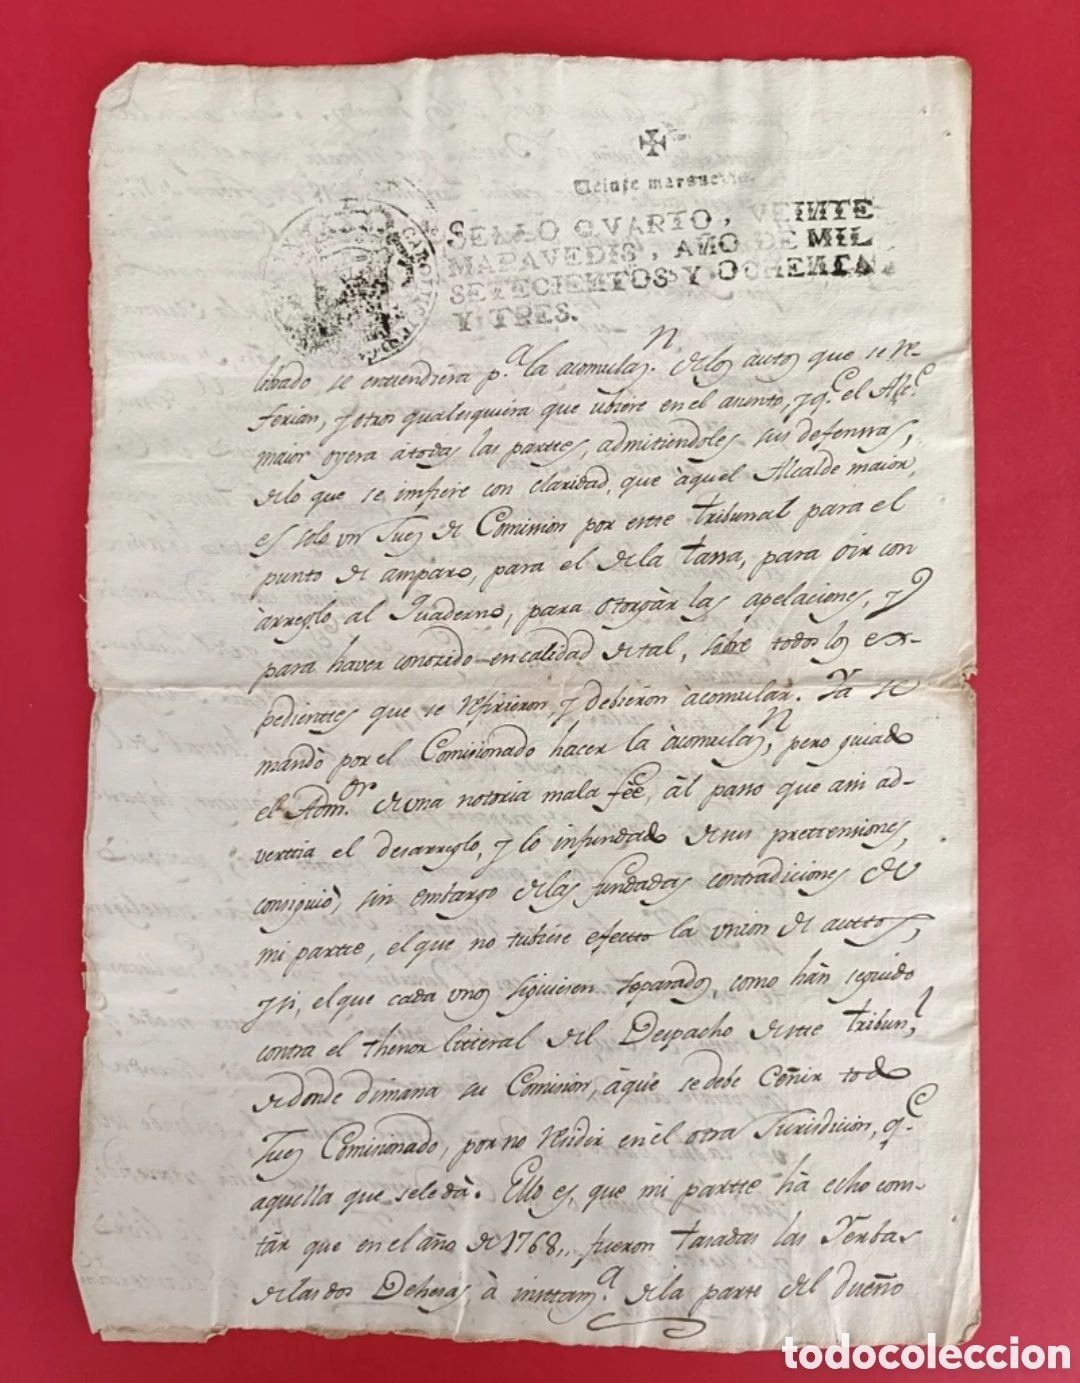 Veinte maravedis.
SELLO QVARTO, VEINTE
MARAVEDIS, AÑO DE MIL
SETECIENTOS Y OCHENTA
Y TRES.
libado se entendiera p.ª la acomulaz.n de los autos que se re-
ferian, y otros qualesquiera que ubiere en el asunto, y q.e el Alc.e
maior oyera à todas las parttes, admitiendoles sus defensas,
de lo que se imfiere con claridad, que àquel Alcalde maior,
es solo un Juez de Comission por estte Tribunal para el
punto de amparo, para el de la tassa, para oir con
àrreglo al Quaderno, para otorgàr las apelaciones, y
para haver conocido en calidad de tal, sobre todos los ex-
pedienttes que se refirieron, y debieron àcomular. Ya se
mandò por el Comisionado hacer la àcomulaz.n, pero guiado
el Adm.or de una notoria mala feè, àl passo que assi ad-
verttia el desarreglo, y lo infundado de sus prettensiones,
consiguiò, sin embargo de las fundadas contradiciones de
mi partte, el que no tubiese efectto la union de auttos,
y si, el que cada unos siguiesen separados, como hàn seguido
contra el thenor litteral del Despacho de estte Tribun.l
de donde dimana su Comision, à que se debe Ceñir todo
Juez Comisionado, por no residir en èl otra Jurisdicion, q.e
aquella que se le dà. Ello es, que mi partte hà echo cons-
tàr que en el año de 1768,, fueron tasadas las Yerbas
de las dos Dehesas à insttam.ª de la parte del dueño
todocoleccion